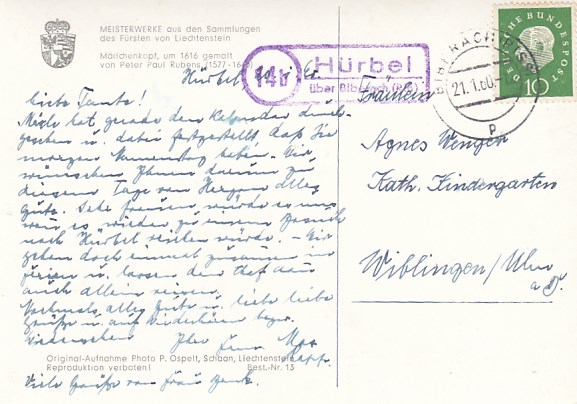 MEISTERWERKE aus den Sammlungen
des Fürsten von Liechtenstein
Mädchenkopf, um 1616 gemalt
von Peter Paul Rubens (1577-
14b
Hürbel
über Biberach (Riß)
DEUTSCHE BUNDESPOST
10
BIBERACH
21.1.60.
Hürbel
Liebe Tante!
hat gerade den Kalender durch-
gesehen u. dabei festgestellt, daß Sie
morgen Namenstag haben. Wir
wünschen Ihnen darum zu
diesem Tage von Herzen alles
Gute. Sehr freuen würde es uns
wenn es wieder zu einem Besuch
nach Hürbel reichen würde. - Wir
gehen doch einmal zusammen in
Ferien u. lassen den Chef dann
auch allein reisen.
Nochmals alles Gute u. liebe liebe
Grüße u. auf Wiederhören bezw.
Wiedersehen Ihre
Viele Grüße von Frau
Original-Aufnahme Photo P. Ospelt, Schaan, Liechtenstein
Reproduktion verboten! Best.-Nr. 13
Fräulein
Agnes Wenger
Kath. Kindergarten
Wiblingen/Ulm
a. D.